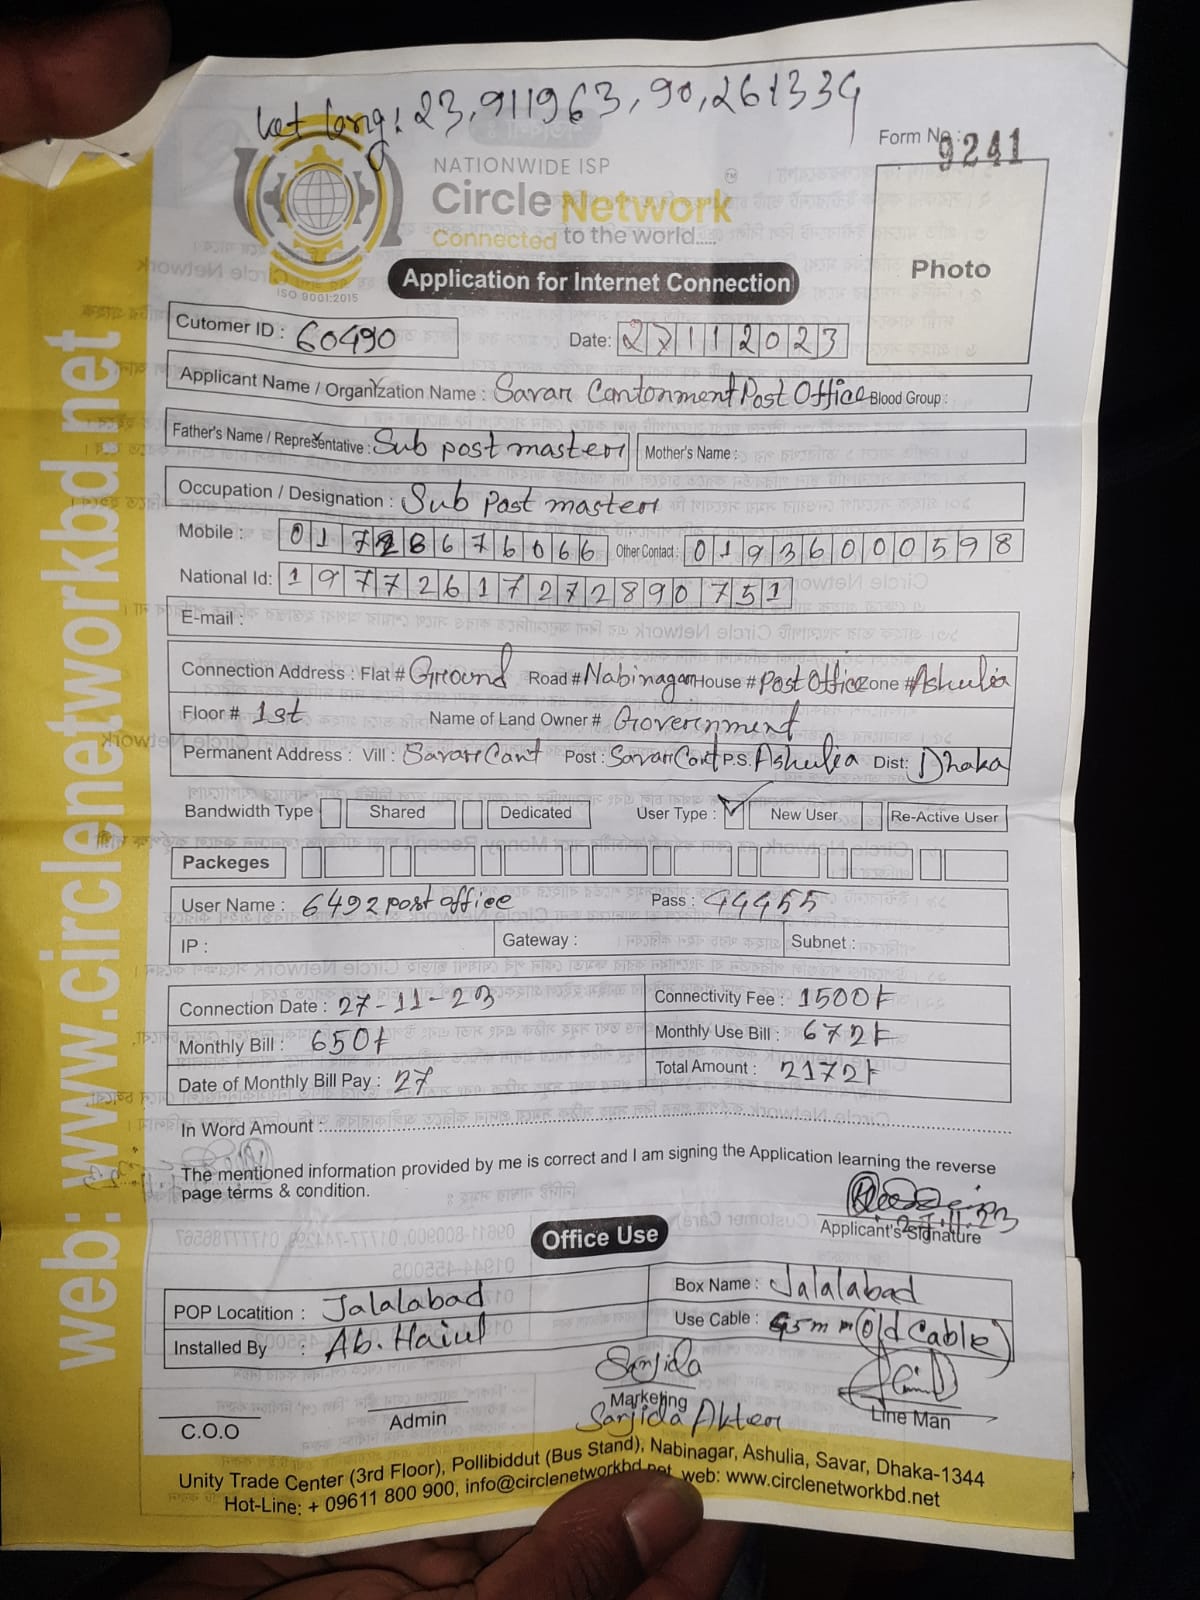 Lat long: 23,911963, 90,261334
Form No : 9241
NATIONWIDE ISP
Circle Network TM
Connected to the world.....
ISO 9001:2015
Application for Internet Connection
Photo
Cutomer ID : 60490 Date: 27112023
Applicant Name / Organization Name : Savar Cantonment Post Office Blood Group :
Father's Name / Representative : Sub post master Mother's Name :
Occupation / Designation : Sub Post master
Mobile : Other Contact : 01936000598
National Id: 19772617272890751
E-mail :
Connection Address : Flat # Ground Road # Nabinagar House # Post Office Zone # Ashulia
Floor # 1st Name of Land Owner # Government
Permanent Address : Vill : Savar Cant Post : Savar Cant P.S. Ashulia Dist: Dhaka
Bandwidth Type Shared Dedicated User Type : New User Re-Active User
Packeges
User Name : 6492 post office Pass : 44455
IP : Gateway : Subnet :
Connection Date : 27-11-23 Connectivity Fee : 1500t
Monthly Bill : 650t Monthly Use Bill : 672t
Date of Monthly Bill Pay : 27 Total Amount : 2172t
In Word Amount :
The mentioned information provided by me is correct and I am signing the Application learning the reverse
page terms & condition.
27.11.23
Applicant's Signature
Office Use
POP Locatition : Jalalabad Box Name : Jalalabad
Installed By : Ab. Haiul Use Cable : 45m (Old Cable)
Sanjida
C.O.O Admin Marketing Line Man
Sanjida Akter
Unity Trade Center (3rd Floor), Pollibiddut (Bus Stand), Nabinagar, Ashulia, Savar, Dhaka-1344
Hot-Line: + 09611 800 900, info@circlenetworkbd.net web: www.circlenetworkbd.net
web: www.circlenetworkbd.net